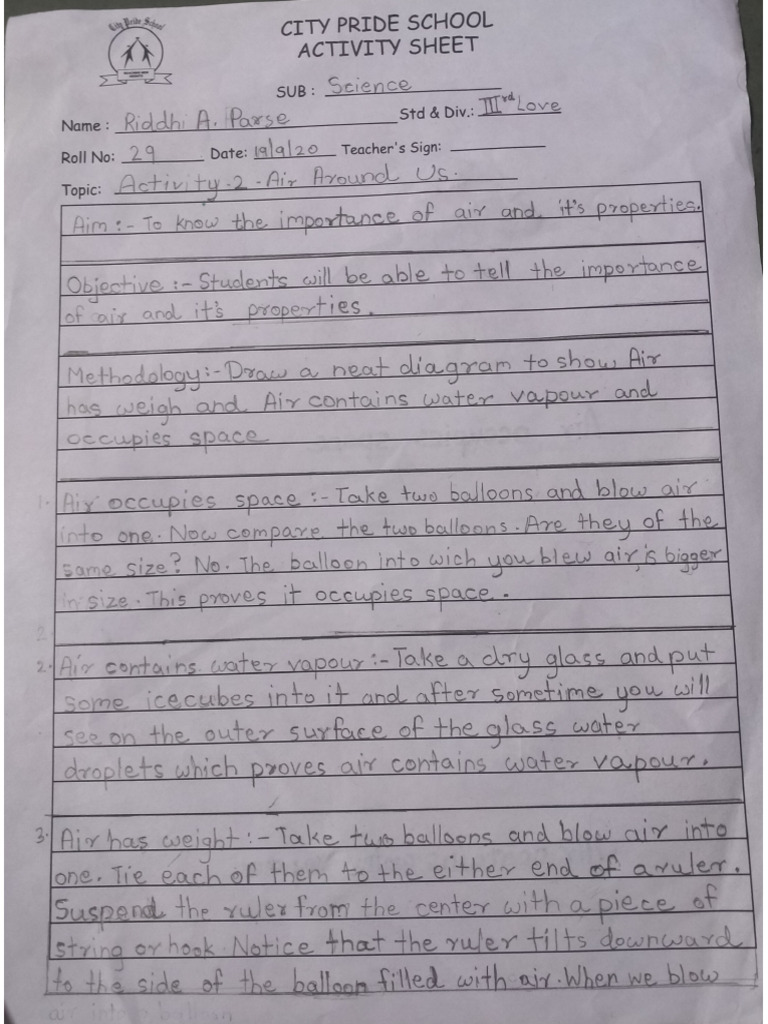 City Pride School
CITY PRIDE SCHOOL
ACTIVITY SHEET
SUB : Science
Name : Riddhi A. Parse Std & Div.: IIIrd Love
Roll No: 29 Date: 19/9/20 Teacher's Sign:
Topic: Activity-2-Air Around Us.
Aim :- To know the importance of air and it's properties.
Objective :- Students will be able to tell the importance
of air and it's properties.
Methodology:- Draw a neat diagram to show Air
has weigh and Air contains water vapour and
occupies space
1. Air occupies space :- Take two balloons and blow air
into one. Now compare the two balloons. Are they of the
same size? No. The balloon into wich you blew air, is bigger
in size. This proves it occupies space.
2.
2. Air contains water vapour :- Take a dry glass and put
some icecubes into it and after sometime you will
see on the outer surface of the glass water
droplets which proves air contains water vapour.
3. Air has weight :- Take two balloons and blow air into
one. Tie each of them to the either end of a ruler.
Suspend the ruler from the center with a piece of
string or hook Notice that the ruler tilts downward
to the side of the balloon filled with air. When we blow
air into a balloon